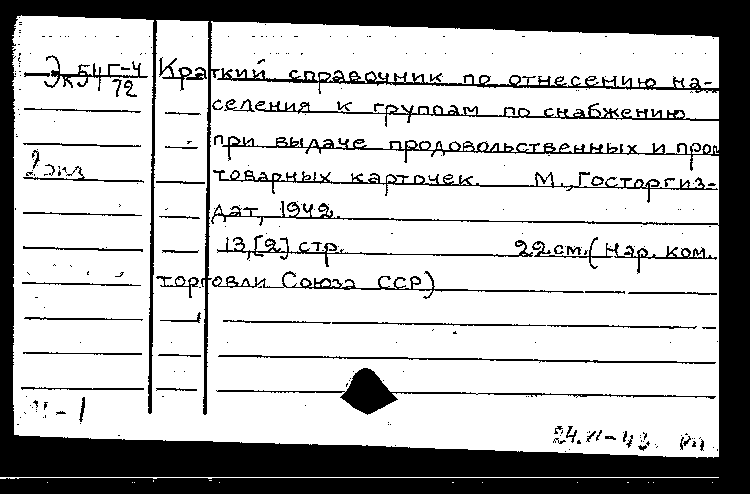 Эк54 Г-4/72 Краткий справочник по отнесению на-
селения к группам по снабжению
при выдаче продовольственных и пром
2 экз товарных карточек. М., Госторгиз-
дат, 1942.
13,[2] стр. 22 см. (Нар. ком.
торговли Союза ССР)
24.VI-43